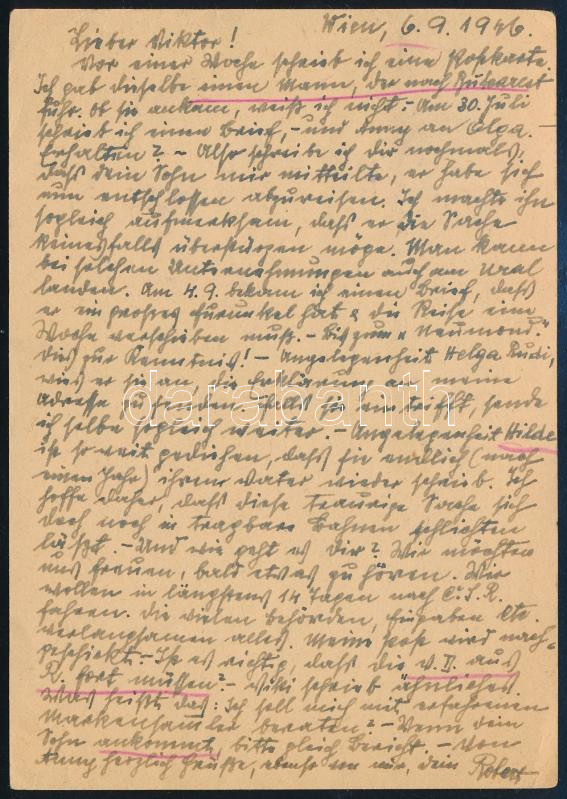 Wien, 6.9.1946.
Lieber Viktor!
Vor einer Woche schrieb ich eine Postkarte.
Ich gab dieselbe einem Mann, der nach Bukarest
fuhr. Ob sie ankam, weiß ich nicht. - Am 30. Juli
schrieb ich einen Brief, - und Anny an Olga. -
Erhalten? - Also schreibe ich dir nochmals,
dass dein Sohn mir mitteilte, er habe sich
nun entschlossen abzureisen. Ich machte ihn
sogleich aufmerksam, dass er die Sache
keinesfalls überstürzen möge. Man kann
bei solchen Unternehmungen auch am Ural
landen. Am 4.9. bekam ich einen Brief, daß
er ein großes Furunkel hat & die Reise eine
Woche verschieben muß. - Bis zum "Neumond."
Dies zur Kenntnis! - Angelegenheit Helga Rudi,
wies er sie an, die Erklärung an meine
Adresse zu senden. Falls sie eintrifft, sende
ich selbe sogleich weiter. - Angelegenheit Hilde
ist so weit gediehen, dass sie endlich (nach
einem Jahr) ihrem Vater wieder schrieb. Ich
hoffe daher, daß diese traurige Sache sich
doch noch in tragbare Bahnen schlichten
läßt. - Und wie geht es dir? Wir möchten
uns freuen, bald etwas zu hören. Wir
wollen in längstens 14 Tagen nach Č.S.R.
fahren. Die vielen Behörden, Eingaben etc.
verlangsamen alles. Meine Post wird nach-
geschickt. - Ist es richtig, dass die V. D. aus
R. fort müssen? - Viki schrieb ähnliches.
Was heißt das: Ich soll mich mit erfahrenen
Markensammler beraten? - Wenn dein
Sohn ankommt, bitte gleich Bericht. - Von
Anny herzlich Grüße, ebenso von mir, dein Robert
darabanth